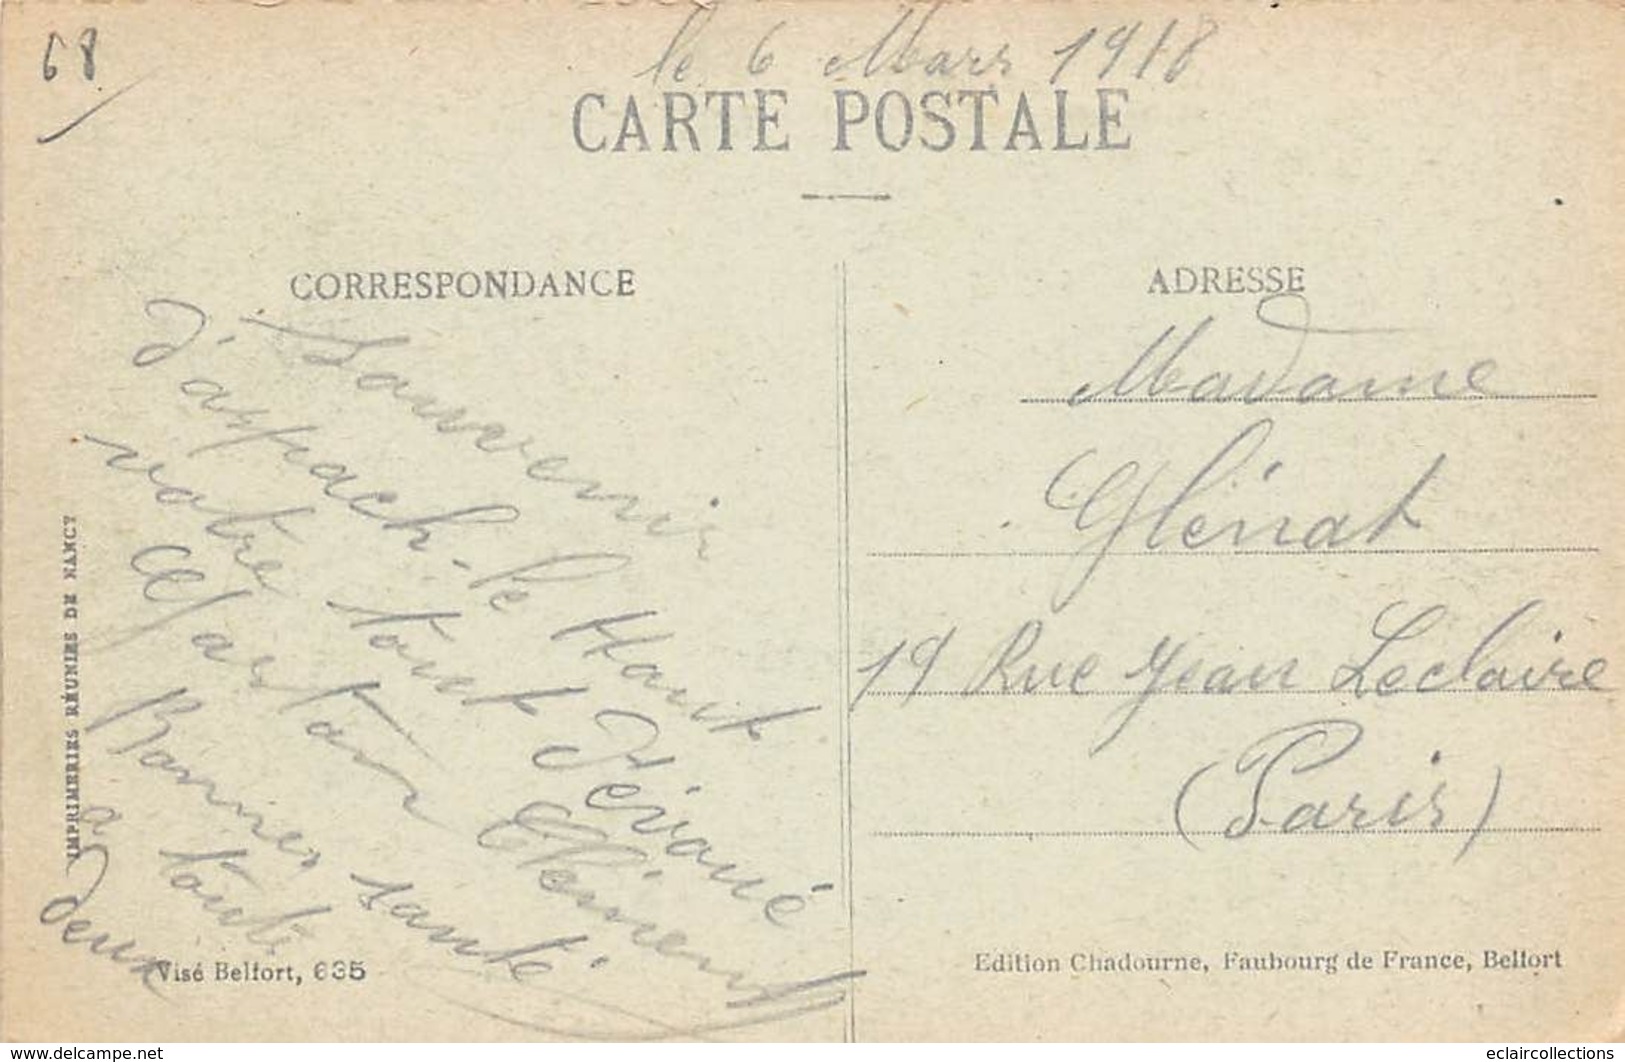 68
le 6 Mars 1918
CARTE POSTALE
CORRESPONDANCE
Souvenir
d'aspach-le Haut
votre tout dévoué
Clément
Bonnes santé
a toute
deux
IMPRIMERIES RÉUNIES DE NANCY
Visé Belfort, 635
ADRESSE
Madame
Glénat
19 Rue Jean Leclaire
(Paris)
Edition Chadourne, Faubourg de France, Belfort
www.delcampe.net
eclaircollections